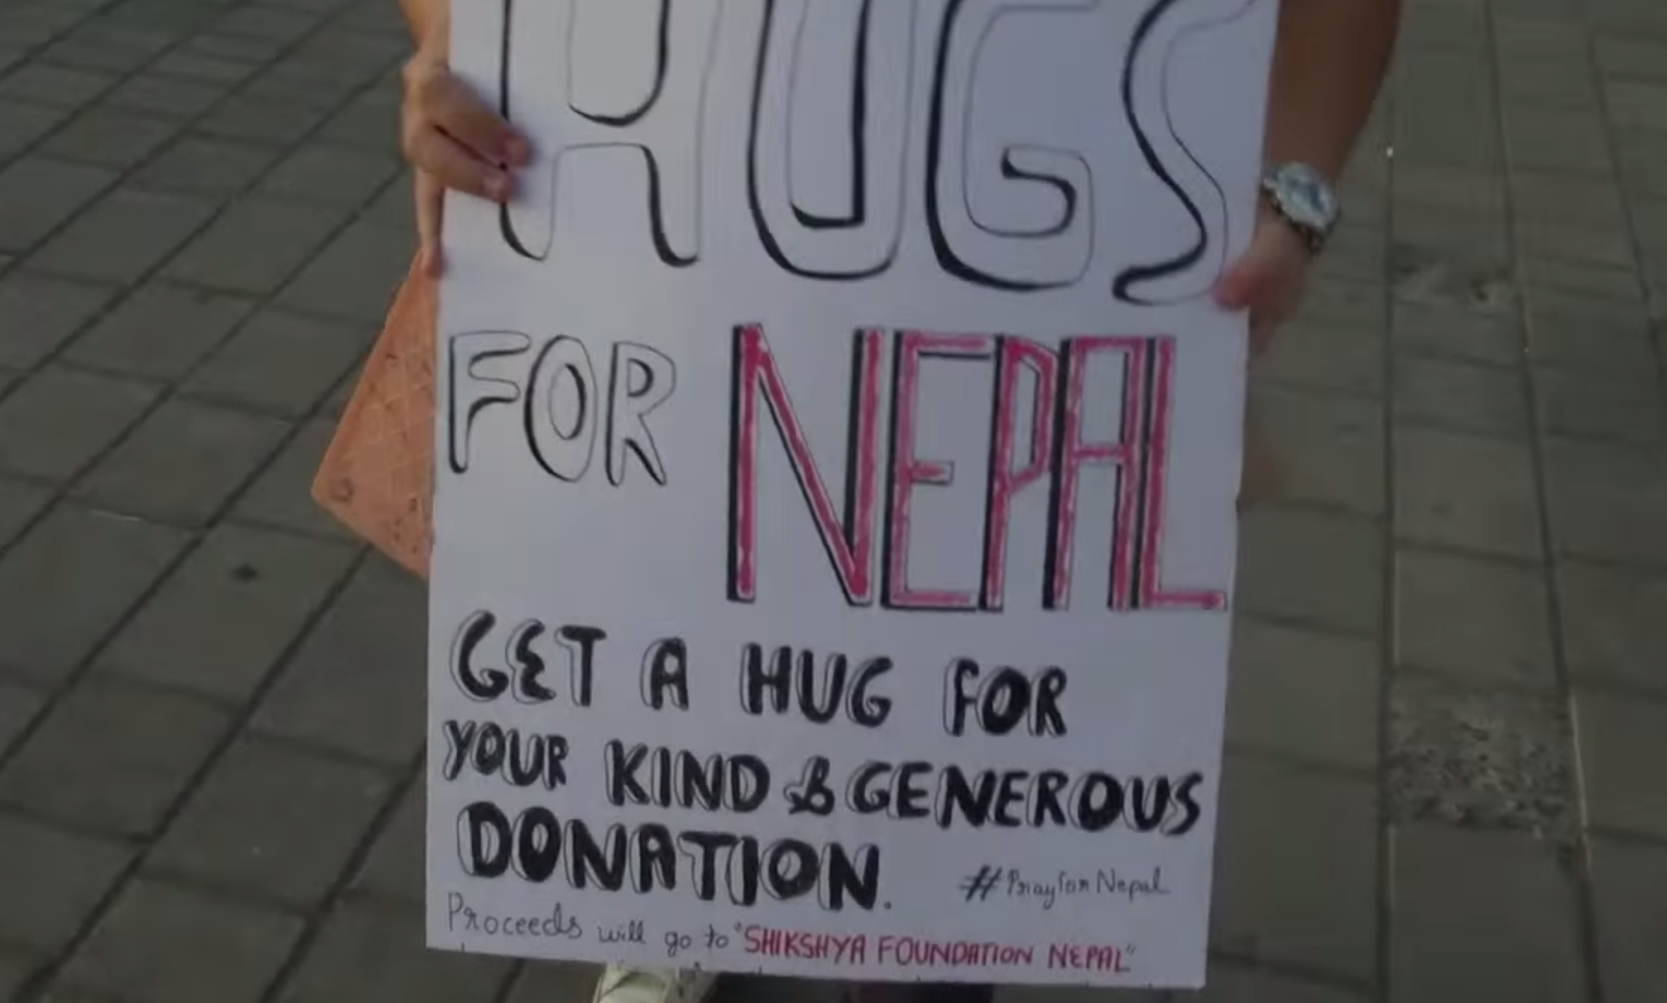 HUGS
FOR NEPAL
GET A HUG FOR
YOUR KIND & GENEROUS
DONATION.
#PrayforNepal
Proceeds will go to "SHIKSHYA FOUNDATION NEPAL"